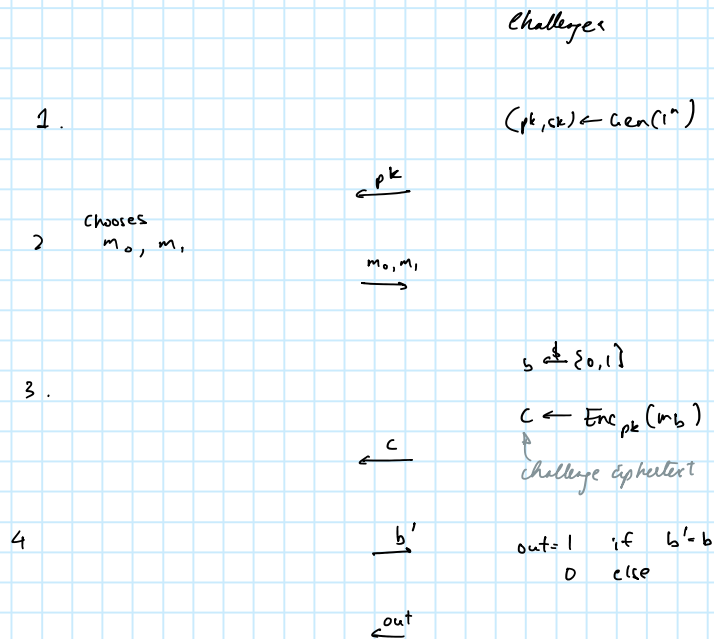 Challenger
1. (pk, sk) ← Gen(1ⁿ)
pk
Chooses
2 m₀, m₁
m₀, m₁
b ←$ {0,1}
3.
C ← Enc_pk (m_b)
c
challenge ciphertext
4 b' out = 1 if b' = b
0 else
out